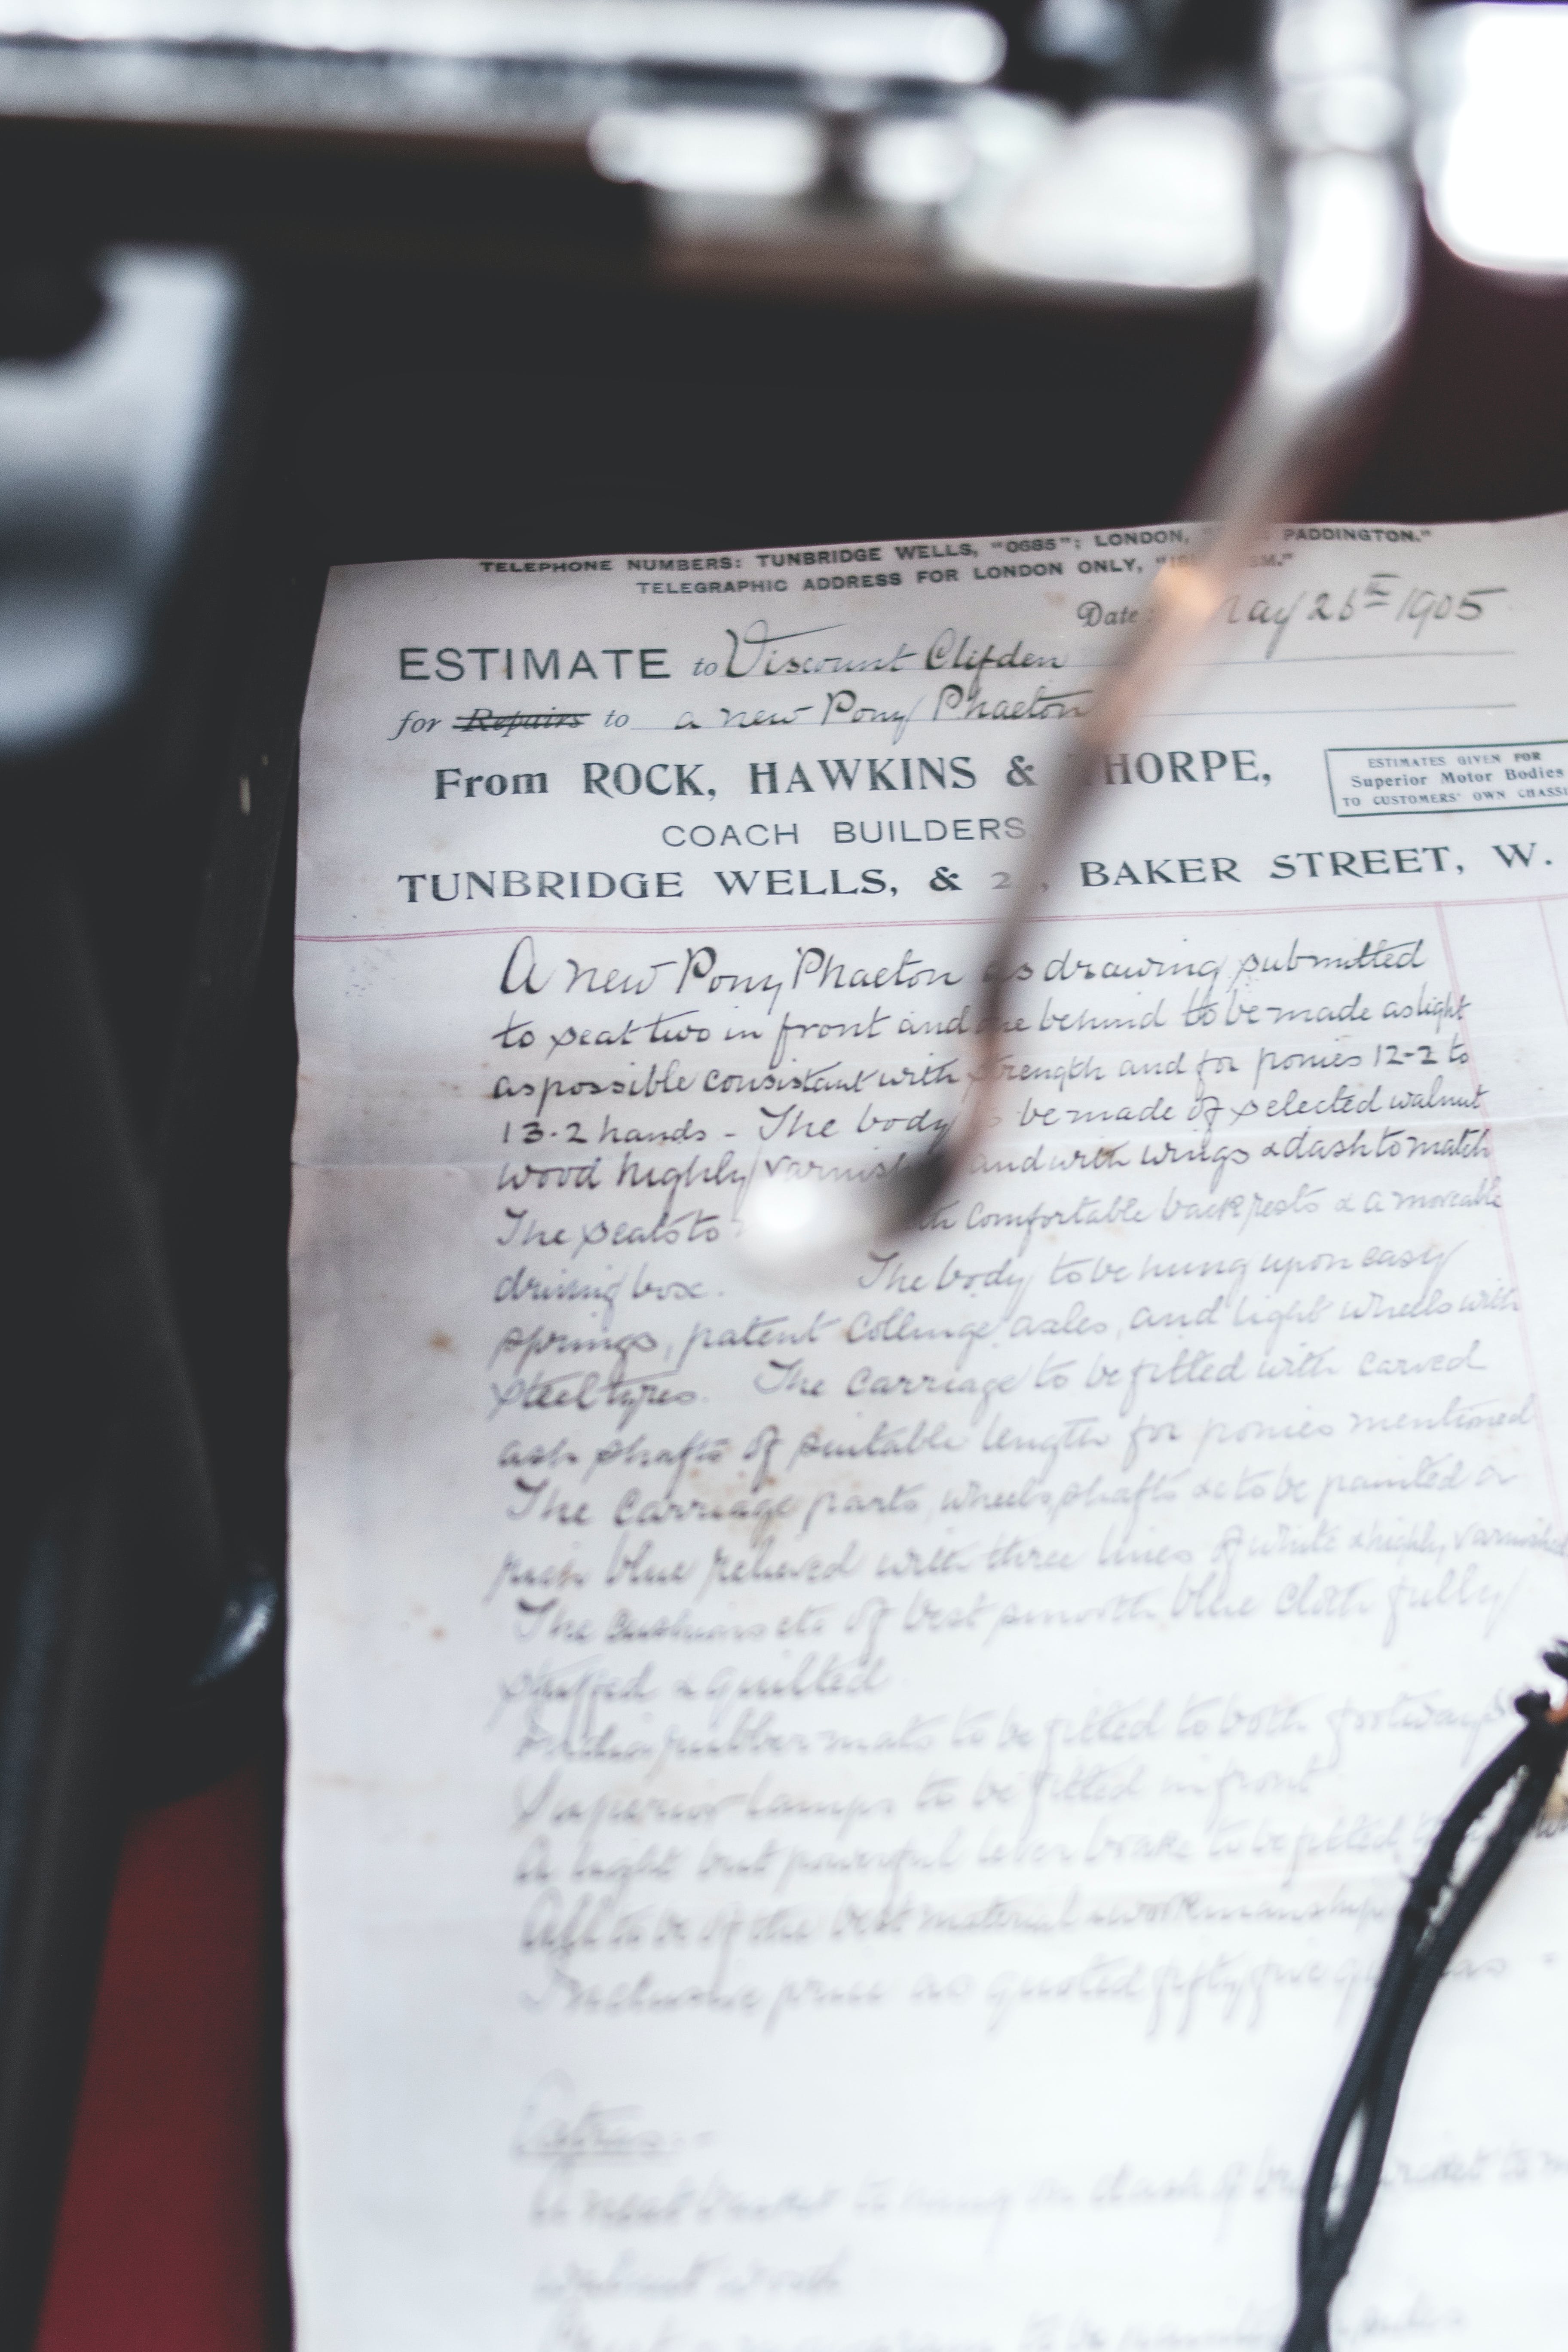 TELEPHONE NUMBERS: TUNBRIDGE WELLS, "0685"; LONDON, PADDINGTON."
TELEGRAPHIC ADDRESS FOR LONDON ONLY,
Date 1905
ESTIMATE to Viscount Clifden
for Repairs to a new Pony Phaeton
From ROCK, HAWKINS & THORPE,
ESTIMATES GIVEN FOR
Superior Motor Bodies
TO CUSTOMERS' OWN CHASSI
COACH BUILDERS
TUNBRIDGE WELLS, & BAKER STREET, W.
A new Pony Phaeton as drawing submitted
to seat two in front and one behind to be made as light
as possible consistant with strength and for ponies 12-2 to
13-2 hands - The body be made of selected walnut
wood highly varnish and with wings & dash to match
The seats to comfortable back rests & a moveable
driving box. The body to be hung upon easy
springs, patent Collinge axles, and light wheels with
steel tyres. The carriage to be fitted with carved
ash shafts of suitable length for ponies mentioned
The carriage parts, wheels, shafts &c to be painted a
blue relieved with three lines of white & highly varnished
The cushions etc of best smooth blue cloth fully
stuffed & quilted
rubber mats to be fitted to both footways
Superior lamps to be fitted in front
A light but powerful lever brake to be fitted
All to be of the best material & workmanship
Inclusive price as quoted fifty five
Extras:-